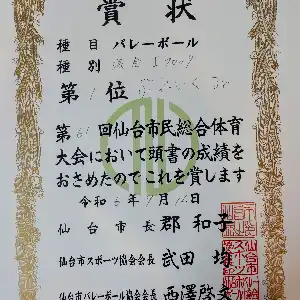 賞状
種目 バレーボール
種別
第1位
第61回仙台市民総合体育
大会において頭書の成績を
おさめたのでこれを賞します
令和6年7月
仙台市長 郡和子
仙台市スポーツ協会会長 武田均
仙台市バレーボール協会会長 西澤啓文